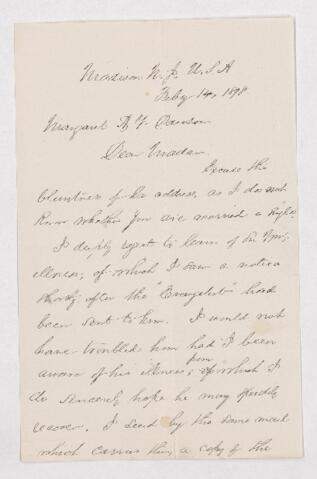 Madison N. J. U. S. A
Feby 14, 1898.
Margaret A. F.
Dear Madam.
Excuse the
bluntness of the address, as I do not
know whether you are married or single
I deeply regret to learn of Sir Wm's
illness; of which I saw a notice
shortly after the "Evangelist" had
been sent to him. I would not
have troubled him had I been
aware of his illness; from which I
do sincerely hope he may speedily
recover. I send by the same mail
which carries this, a copy of the